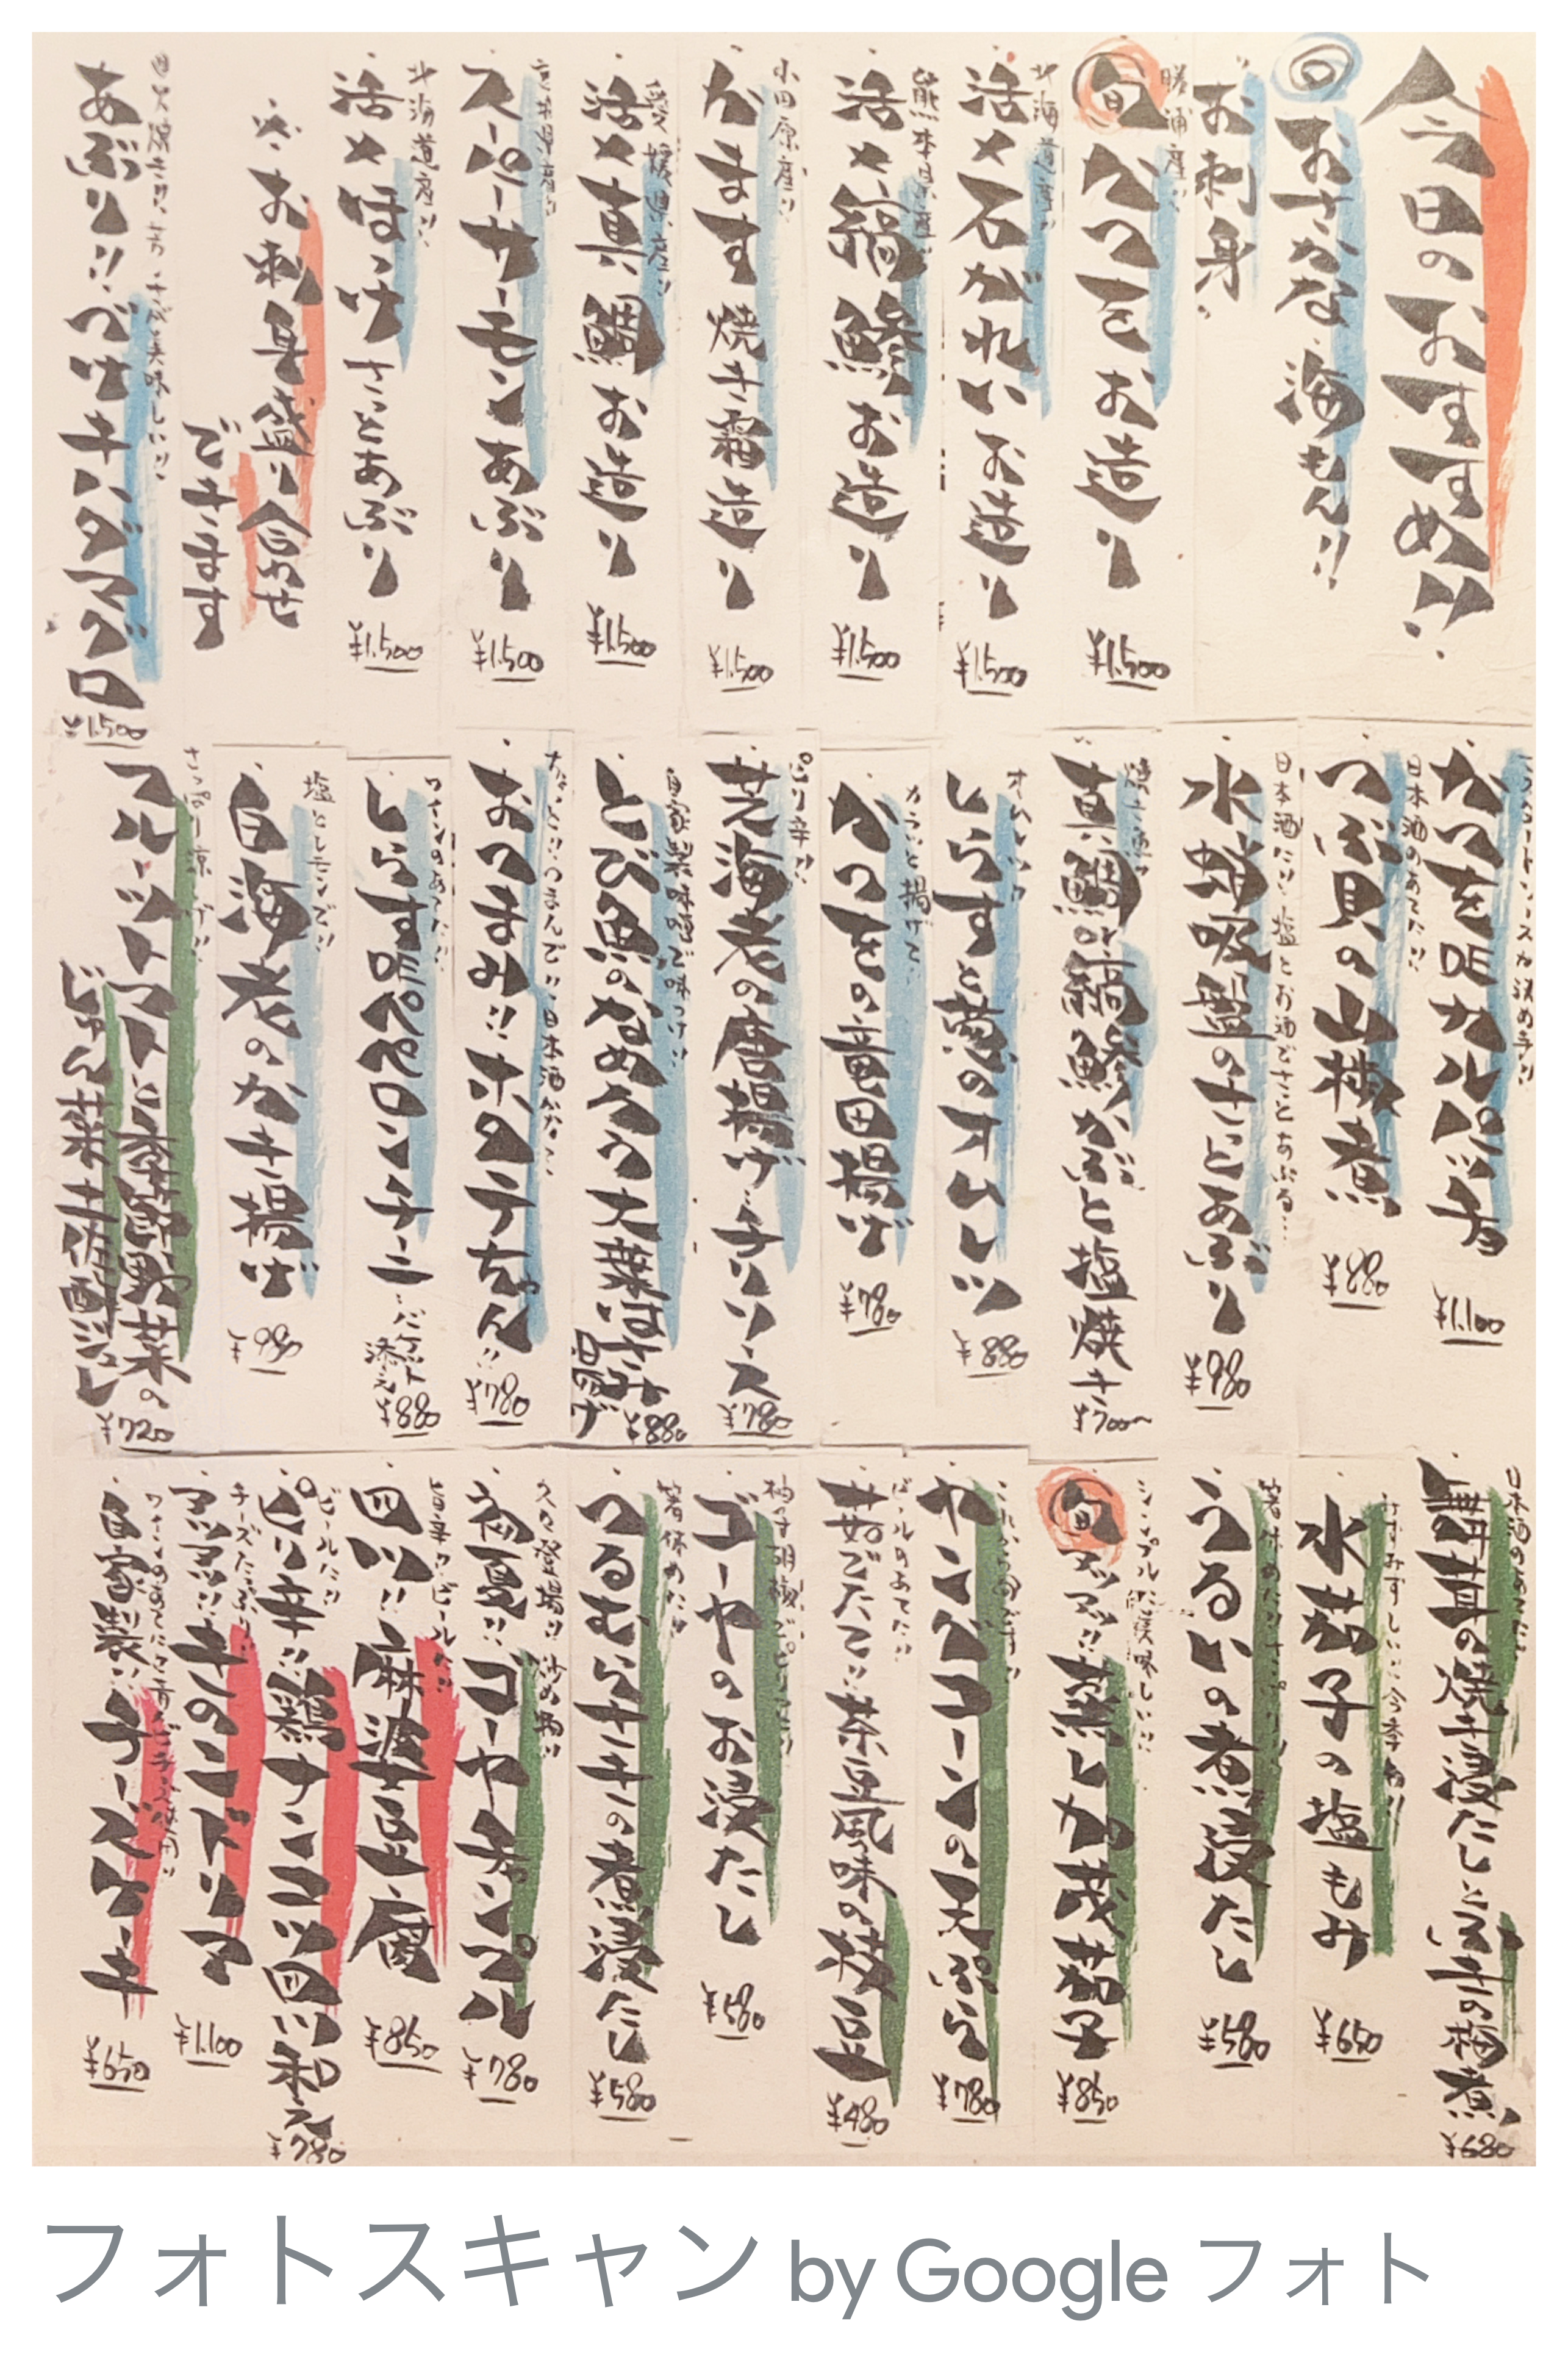 今日のおすすめ!!
おさかな、海もん!!
お刺身
勝浦産!!
旬 かつをお造り
¥1,500
北海道産!!
活〆石がれいお造り
¥1,500
熊本県産!!
活〆縞鯵お造り
¥1,500
小田原産!!
かます焼き霜造り
¥1,500
愛媛県産!!
活〆真鯛お造り
¥1,500
スーパーサーモンあぶり
¥1,500
北海道産!!
活〆ほっけさっとあぶり
¥1,500
※お刺身盛り合わせ
できます
あぶり!!べけキハダマグロ
¥1,500
かつを昆カルパッチョ
¥1,100
日本酒のあてに!!
つぶ貝の山椒煮
¥880
日本酒に!!塩とお酒でさっとあぶる…
水蛸吸盤のさっとあぶり
¥980
焼き魚!!
真鯛or縞鯵かぶと塩焼き
¥700〜
オムレツ!!
しらすと葱のオムレツ
¥880
カラッと揚げて…
かつをの竜田揚げ
¥780
ぷり辛!!
芝海老の唐揚げ…チリソース
¥780
自家製味噌で味つけ!!
とび魚のなめろう大葉はさみ
¥880
おつまみ!!ホタテちゃん!!
¥780
ワインのあてに!!
しらす昆ペペロンチーニ…バケット
添え
¥880
塩とレモンで!!
白海老のかき揚げ
¥980
さっぱり涼しげ!!
フルーツトマトと季節野菜の
じゅん菜土佐酢ジュレ
¥720
日本酒のあてに!!
¥680
みずみずしい!!今季初!!
水茄子の塩もみ
¥650
うるいの煮浸たし
¥580
シンプルに美味しい!!
旬 アツアツ!!蒸し加茂茄子
¥850
これからの旬です!!
ヤングコーンの天ぷら
¥780
ビールのあてに!!
茹でたて!!茶豆風味の枝豆
¥480
柚子胡椒でピリッと!!
ゴーヤのお浸たし
¥580
箸休めに!!
つるむらさきの煮浸たし
¥580
久々登場!!炒め物!!
初夏!!ゴーヤチャンプル
¥780
旨辛!!ビールに!!
四川!!麻婆豆腐
¥850
ビールに!!
ピリ辛!!鶏ナンコツ四川和え
¥780
チーズたっぷり!!
アツアツ!!きのこドリア
¥1,100
自家製!!チーズケーキ
¥650
フォトスキャン by Google フォト